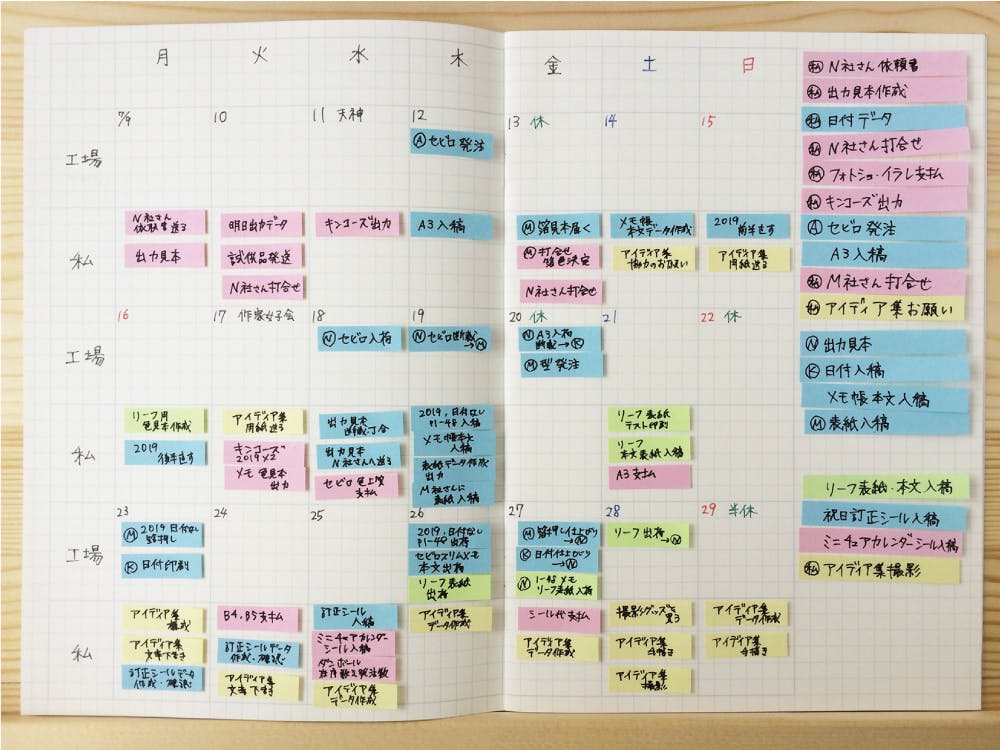 月 火 水 木 金 土 日
7/9 10 11 天神 12 13 休 14 15
工場
Ⓐセビロ発注
私
N社さん
依頼書送る
出力見本
明日出力データ
試供品発送
N社さん打合せ
キンコーズ出力
A3入稿
Ⓜ箔見本届く
Ⓜ打合せ
箔色決定
N社さん打合せ
メモ帳
本文データ作成
アイディア集
協力のお願い
2019
前半戻す
アイディア集
用紙送る
16 17 作家女子会 18 19 20 休 21 22 休
工場
Ⓝセビロ入稿
Ⓝセビロ断裁
→Ⓜ
ⓃA3入稿
断裁→Ⓚ
Ⓜ型発注
私
リーフ用
色見本作成
2019
後半戻す
アイディア集
用紙送る
キンコーズ
2019×2
メモ色見本
出力
出力見本
断裁・丁合
出力見本
N社さんへ送る
セビロ色上質
支払
2019,日付なし
P1-48入稿
メモ帳本文
入稿
表紙データ作成
出力
M社さんに
表紙入稿
リーフ表紙
テスト印刷
リーフ
本文表紙入稿
A3支払
23 24 25 26 27 28 29 半休
工場
Ⓜ2019日付なし
箔押し
Ⓚ日付印刷
2019,日付なし
P1-48出荷
セビロスリムメモ
本文出荷
リーフ表紙
出荷
Ⓜ箔押し仕上がり
→Ⓝ
Ⓚ日付仕上がり
→Ⓝ
Ⓝ1-48メモ
リーフ表紙入稿
リーフ出荷
→Ⓝ
私
アイディア集
構成
アイディア集
文章下書き
訂正シールデータ
作成・確認
B4,B5支払
訂正シールデータ
作成・確認
アイディア集
文章下書き
訂正シール
入稿
ミニチュアカレンダー
シール入稿
ダンボール
在庫数え発注数
アイディア集
データ作成
アイディア集
データ作成
シール代支払
アイディア集
データ作成
撮影グッズを
買う
アイディア集
手描き
アイディア集
撮影
アイディア集
データ作成
アイディア集
手描き
㊙N社さん依頼書
出力見本作成
日付データ
N社さん打合せ
フォトショ・イラレ支払
キンコーズ出力
Ⓐセビロ発注
A3入稿
M社さん打合せ
アイディア集お願い
Ⓝ出力見本
Ⓚ日付入稿
メモ帳本文入稿
Ⓜ表紙入稿
リーフ表紙・本文入稿
祝日訂正シール入稿
ミニチュアカレンダーシール入稿
アイディア集撮影